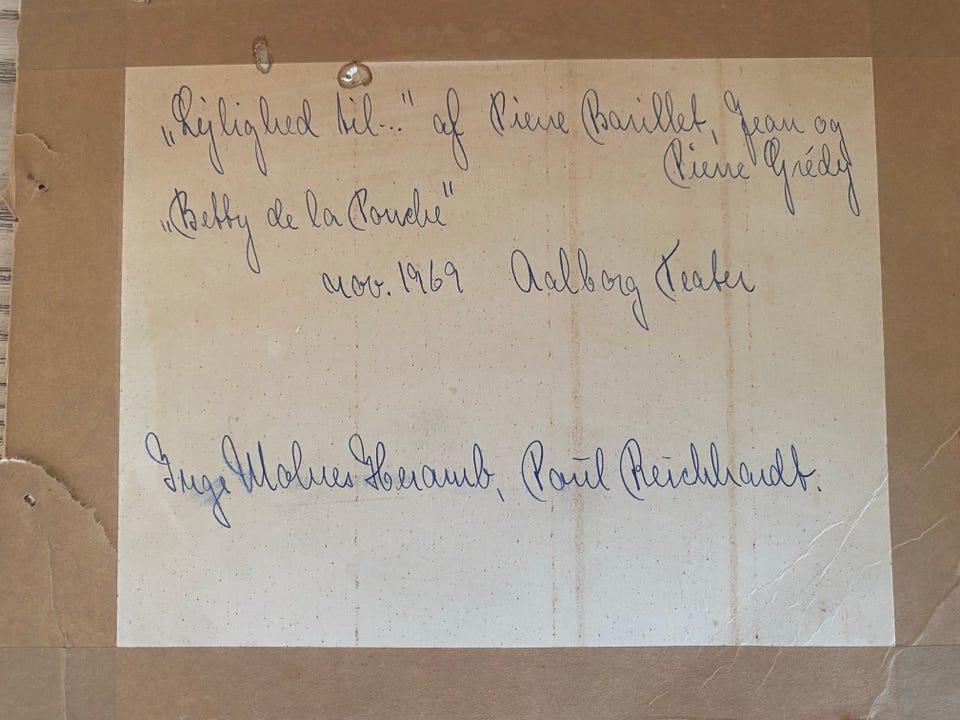 „Lejlighed til..." af Pierre Barillet, Jean og
Pierre Grédy
„Betty de la Pouche"
nov. 1969 Aalborg Teater
Inge Molnes Heramb, Poul Reichhardt.